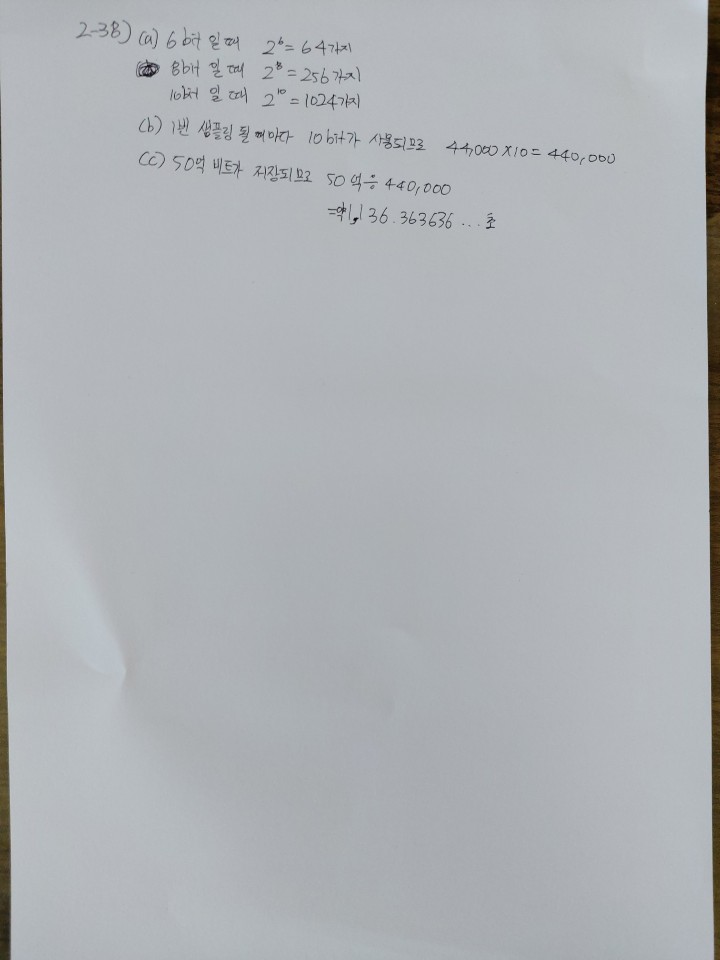 2-38) (a) 6 bit 일 때 2⁶ = 64가지
8bit 일 때 2⁸ = 256가지
10bit 일 때 2¹⁰ = 1024가지
(b) 1번 샘플링 될 때마다 10bit가 사용되므로 44,000 × 10 = 440,000
(c) 50억 비트가 저장되므로 50억 ÷ 440,000
=약1,136.363636... 초